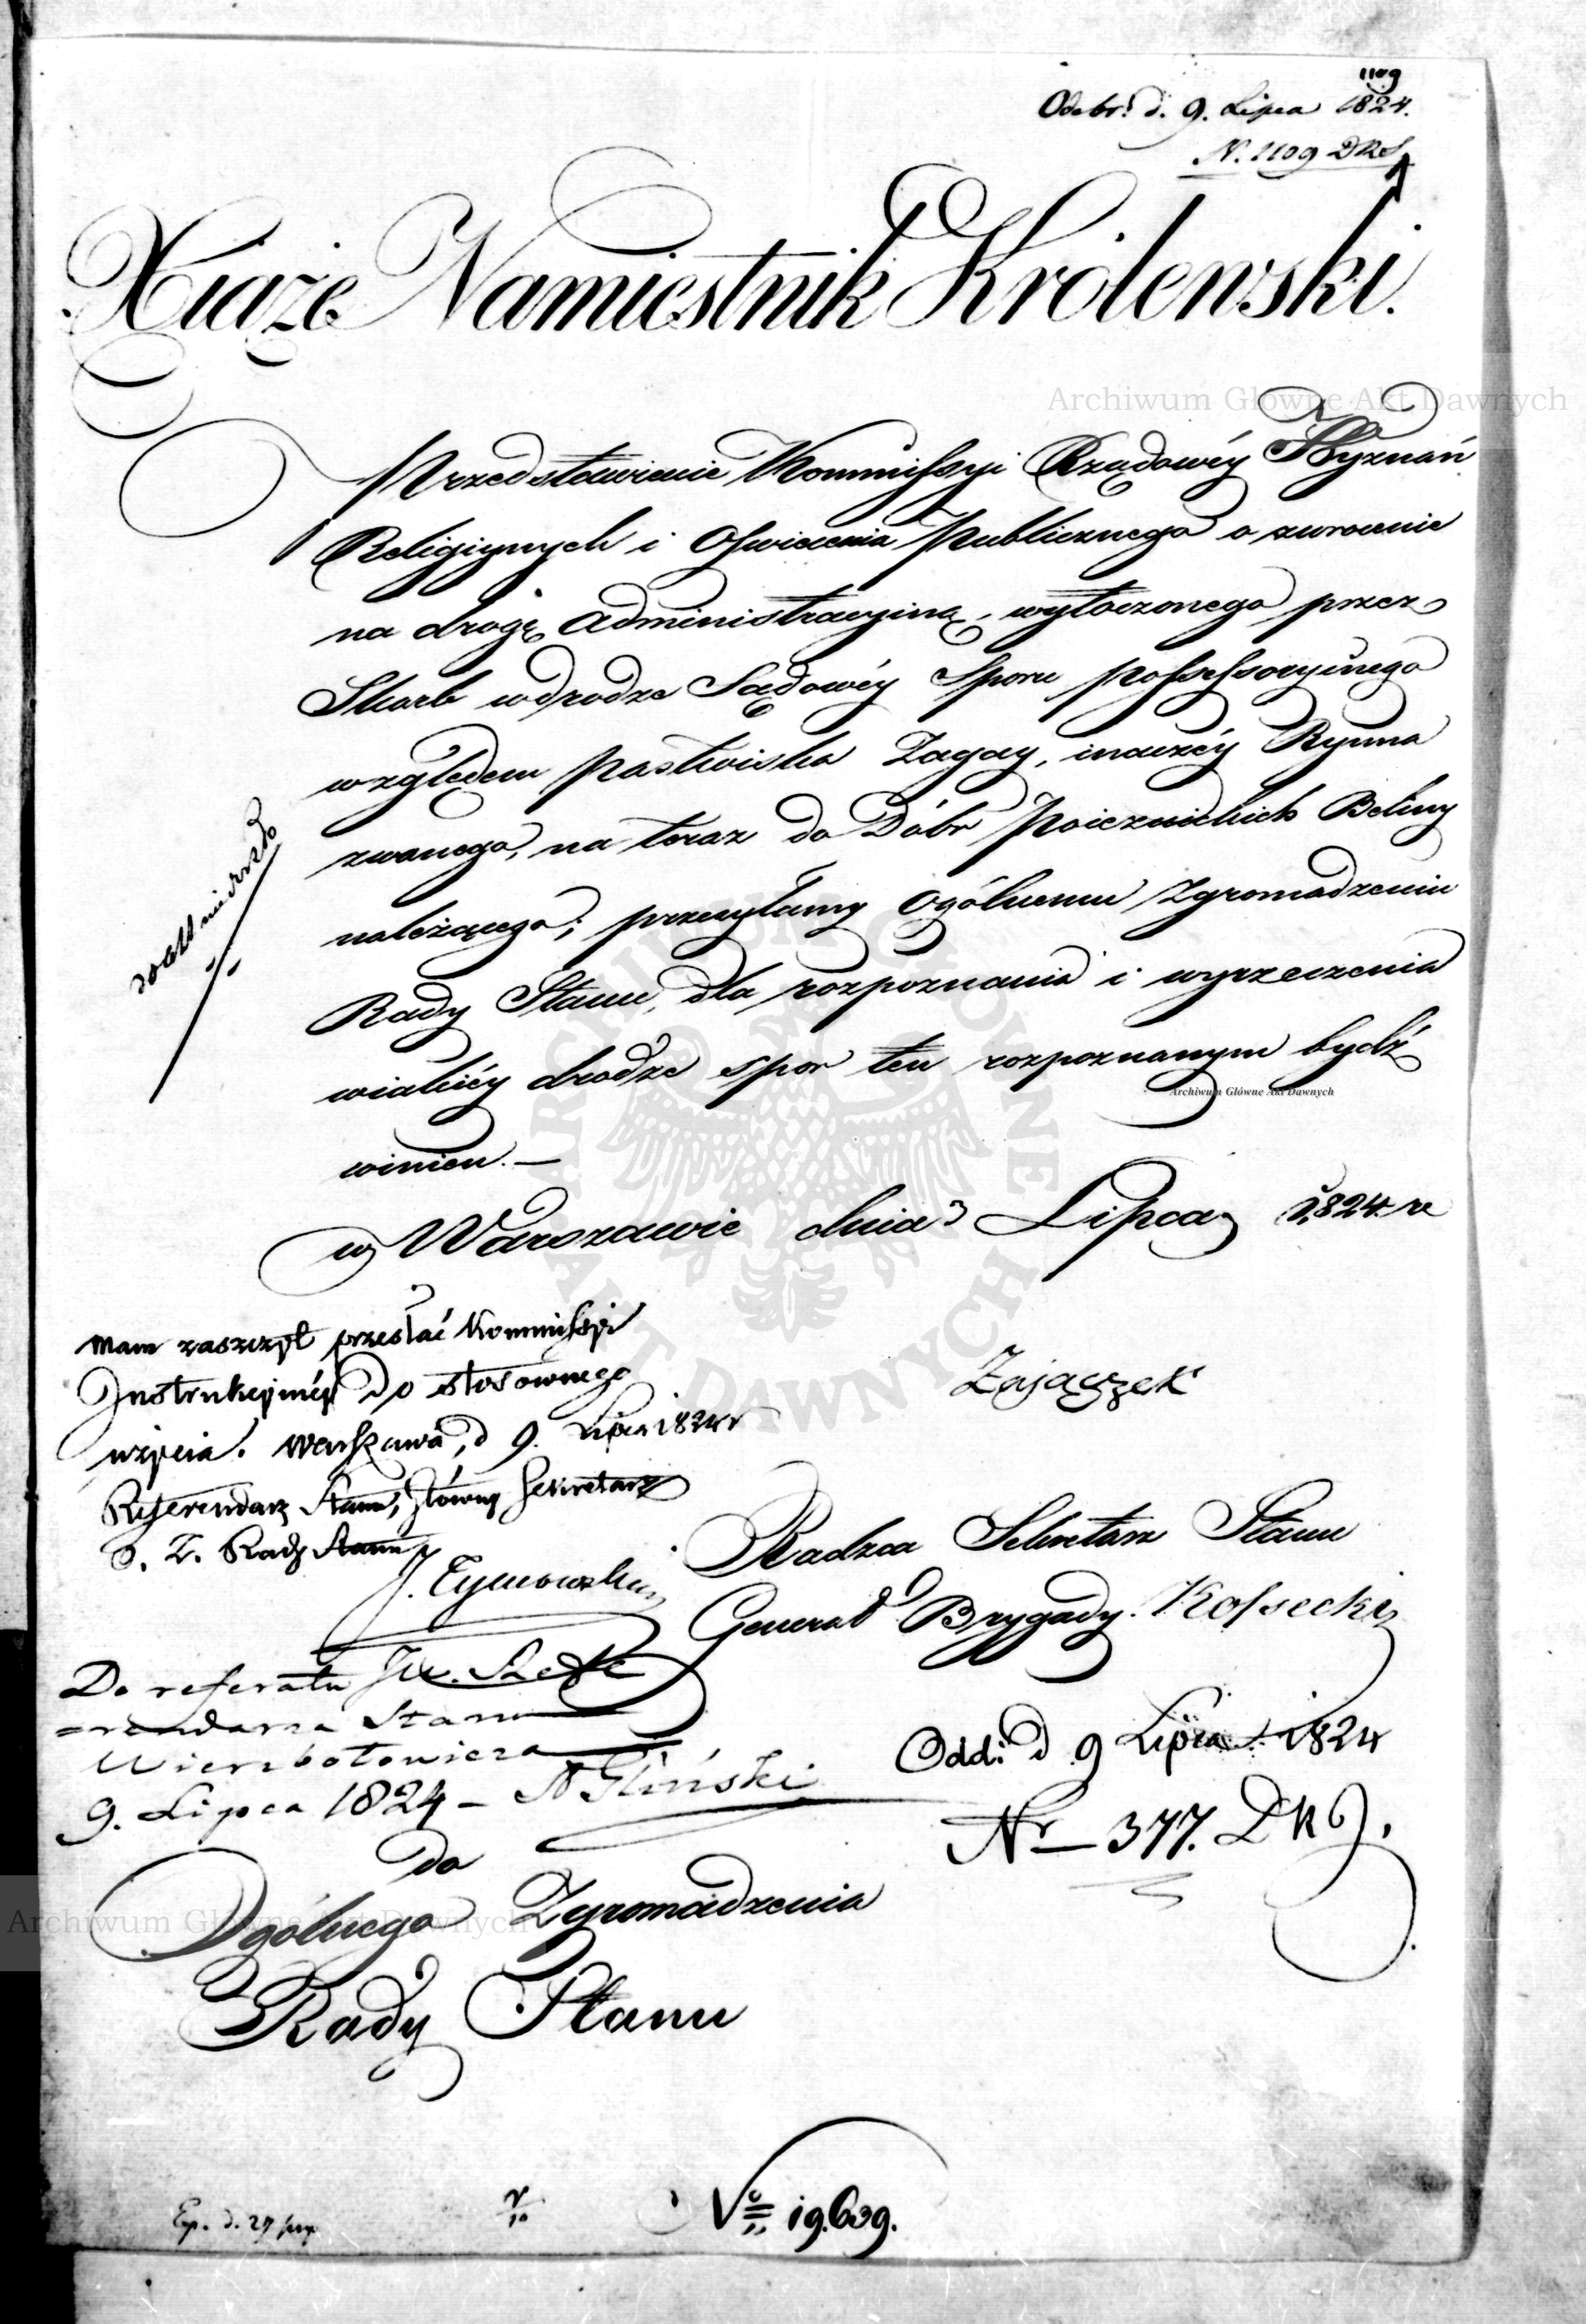 1109
Odebr: d. 9. Lipca 1824.
N. 1109 DRS
Xiąże Namiestnik Królewski.
Archiwum Główne Akt Dawnych
Przedstawienie Kommissyi Rządowéy Wyznań
Religiynych i Oświecenia Publicznego o zwrocenie
na drogę Administracyiną, wytoczonego przez
Skarb w drodze Sądowéy Sporu possessoryinego
względem Pastwiska Zagay, inaczéy Rynna
zwanego, na teraz do Dóbr Poiezuickich Beliny
należącego; przesyłamy Ogólnemu Zgromadzeniu
Rady Stanu, dla rozpoznania i wyrzeczenia
w iakiéy drodze spor ten rozpoznanym bydź
Archiwum Główne Akt Dawnych
winien. —
w Warszawie dnia 3 Lipca 1824 r.
Mam zaszczyt przesłać Kommissyi
Instrukcyinéy do stosownego
użycia. Warszawa, d 9. Lipca 1824 r
Referendarz Stanu, Główny Sekretarz
O. Z. Rady Stanu
J. Tymowski
Zajączek
Radzca Sekretarz Stanu
Generał Brygady Kossecki
Do referatu JW. Refe
=rendarza Stanu
Wierzbołowicza
9. Lipca 1824 – Gliński
Odd: d 9 Lipca 1824
Nr 377. DKJ.
do
Ogólnego Zgromadzenia
Archiwum Główne Akt Dawnych
Rady Stanu
Exp. d. 27
19.639.
ARCHIWUM GŁÓWNE AKT DAWNYCH